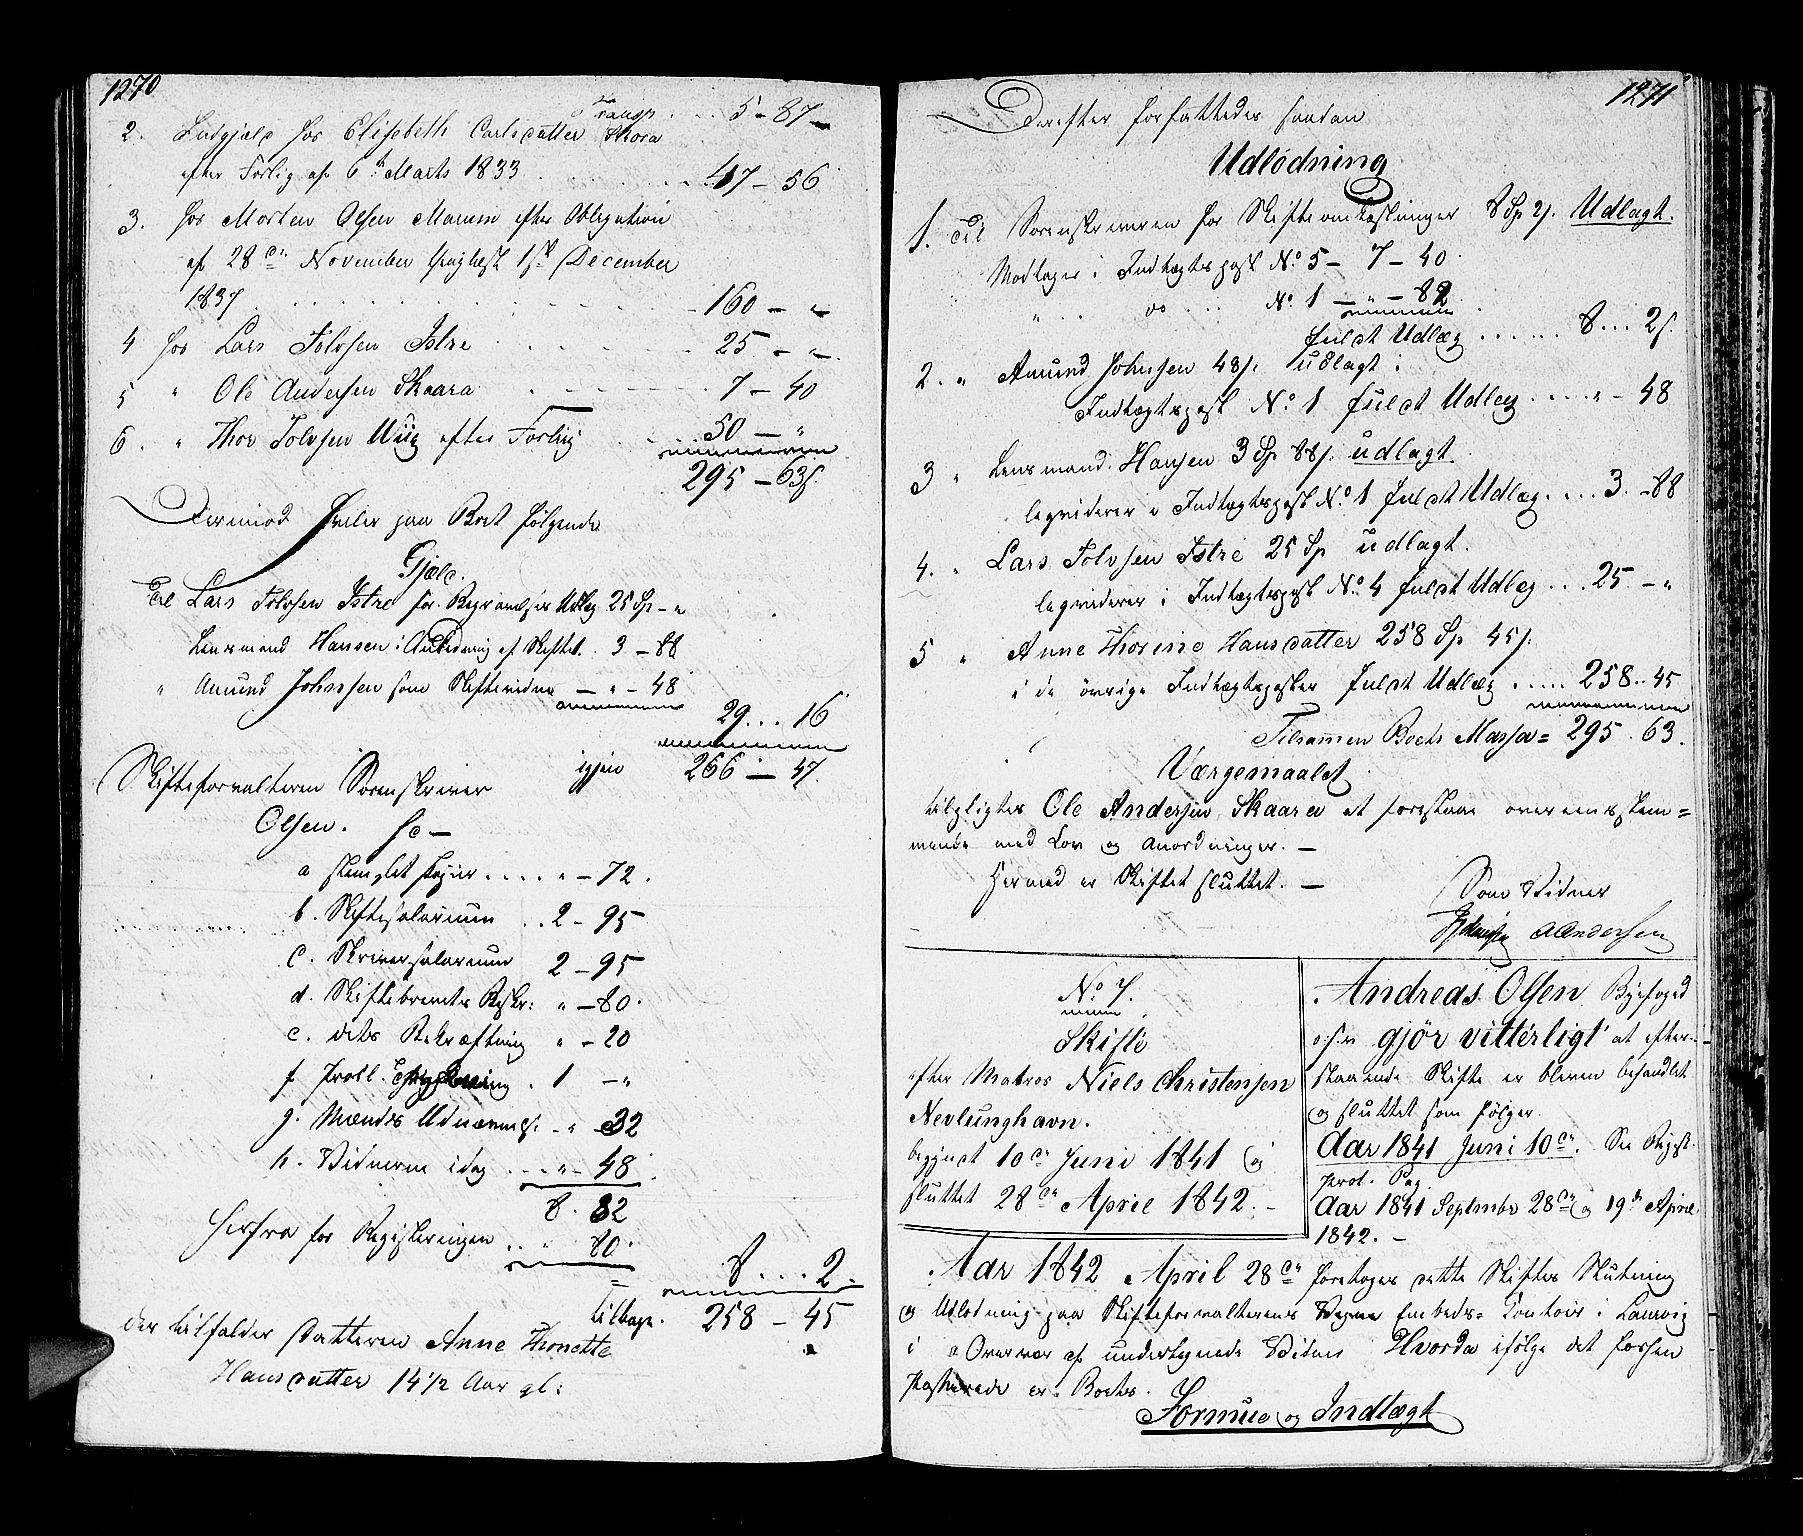 1270
Transp. . . . 5 - 87
2. Indgjæld hos Elisebeth Carlsdatter Skora
efter Forlig af 6te Marts 1833 . . . 47 - 56
3. hos Morten Olsen Manum efter Obligation
af 28de November thinglæst 1ste December
1837 . . . 160 - "
4 hos Lars Tolvsen Istre . . . 25 - "
5 " Ole Andersen Skaara . . . 7 - 40
6. " Thor Tolvsen Wiig efter Forlig . . . 50 - "
295 - 63s.
Derimod hviler paa Boet følgende
Gjæld.
Til Lars Tolvsen Istre for Begravelses Udlæg 25 Sp - "
Lensmand Hansen i Anledning af Skiftet. 3 - 88
" Amund Johnsen som Skiftevidne - " - 48
29 . . . 16
igjen 266 - 47.
Skifteforvalteren Sorenskriver
Olsen.
a stemplet Papir . . . . " - 72.
b. Skiftesalarium . . 2 - 95
c. Skriversalarium 2 - 95
d. Skiftebrevets Beskr: " - 80.
e. dets Bekræftning " - 20
f Protl. . 1 - "
g. Mænds Udnævnels. - " - 32
h. Vidnerne idag . . . " - 48.
8. 82
Herfra for Registeringen . . " 80.
8 . . . 2.
tilbage. 258 - 45
der tilfalder Datteren Anne Thorine
Hansdatter 14 1/2 Aar gl:
1271
Derefter forfattedes saadan
Udlodning
1. Til Sorenskriveren for Skifteomkostninger 8 Sp 2s. Udlagt.
Modtager i Indtægtspost No 5 - 7 - 40.
" . . do . . . No 1 - " - 82
fuldt Udlæg . . . . . . 8 . . . 2s.
2. " Amund Johnsen 48s. udlagt i
Indtægtspost No 1 fuldt Udlæg . . . . " - 48
3 " Lensmand Hansen 3 Sp 88s. udlagt.
leqviderer i Indtægtspost No 1 fuldt Udlæg . . . . 3. - 88
4. " Lars Tolvsen Istre 25 Sp udlagt.
leqviderer i Indtægtspost No 4 fuldt Udlæg . . . 25 - "
5 " Anne Thorine Hansdatter 258 Sp 45s.
i de øvrige Indtægtsposter fuldt Udlæg . . . . . 258 . . 45
Tilsammen Boets Massa = 295. 63.
Værgemaalet
tilpligtes Ole Andersen Skaara at forestaae overeensstem=
mende med Lov og Anordninger. -
Hermed er Skiftet sluttet. -
Som Vidner
AAndersen
No 7.
Skifte
efter Matros Niels Christensen
Nevlunghavn.
begyndt 10de Juni 1841 og
sluttet 28de April 1842. -
Andreas Olsen Byefoged
o.s.v. gjør vitterligt at efter-
staaende Skifte er bleven behandlet
og sluttet som følger.
Aar 1841 Juni 10de. See Regist.
prot. Pag.
Aar 1841 Septmbr 28de og 19de April
1842. -
Aar 1842 April 28de foretoges dette Skiftes Slutning
og Udlodning paa Skifteforvalterens Embeds= Contoir i Laurvig
i Overvær af undertegnede Vidner Hvorda ifølge det forhen
Passerede er Boets.
Formue og Indtægt